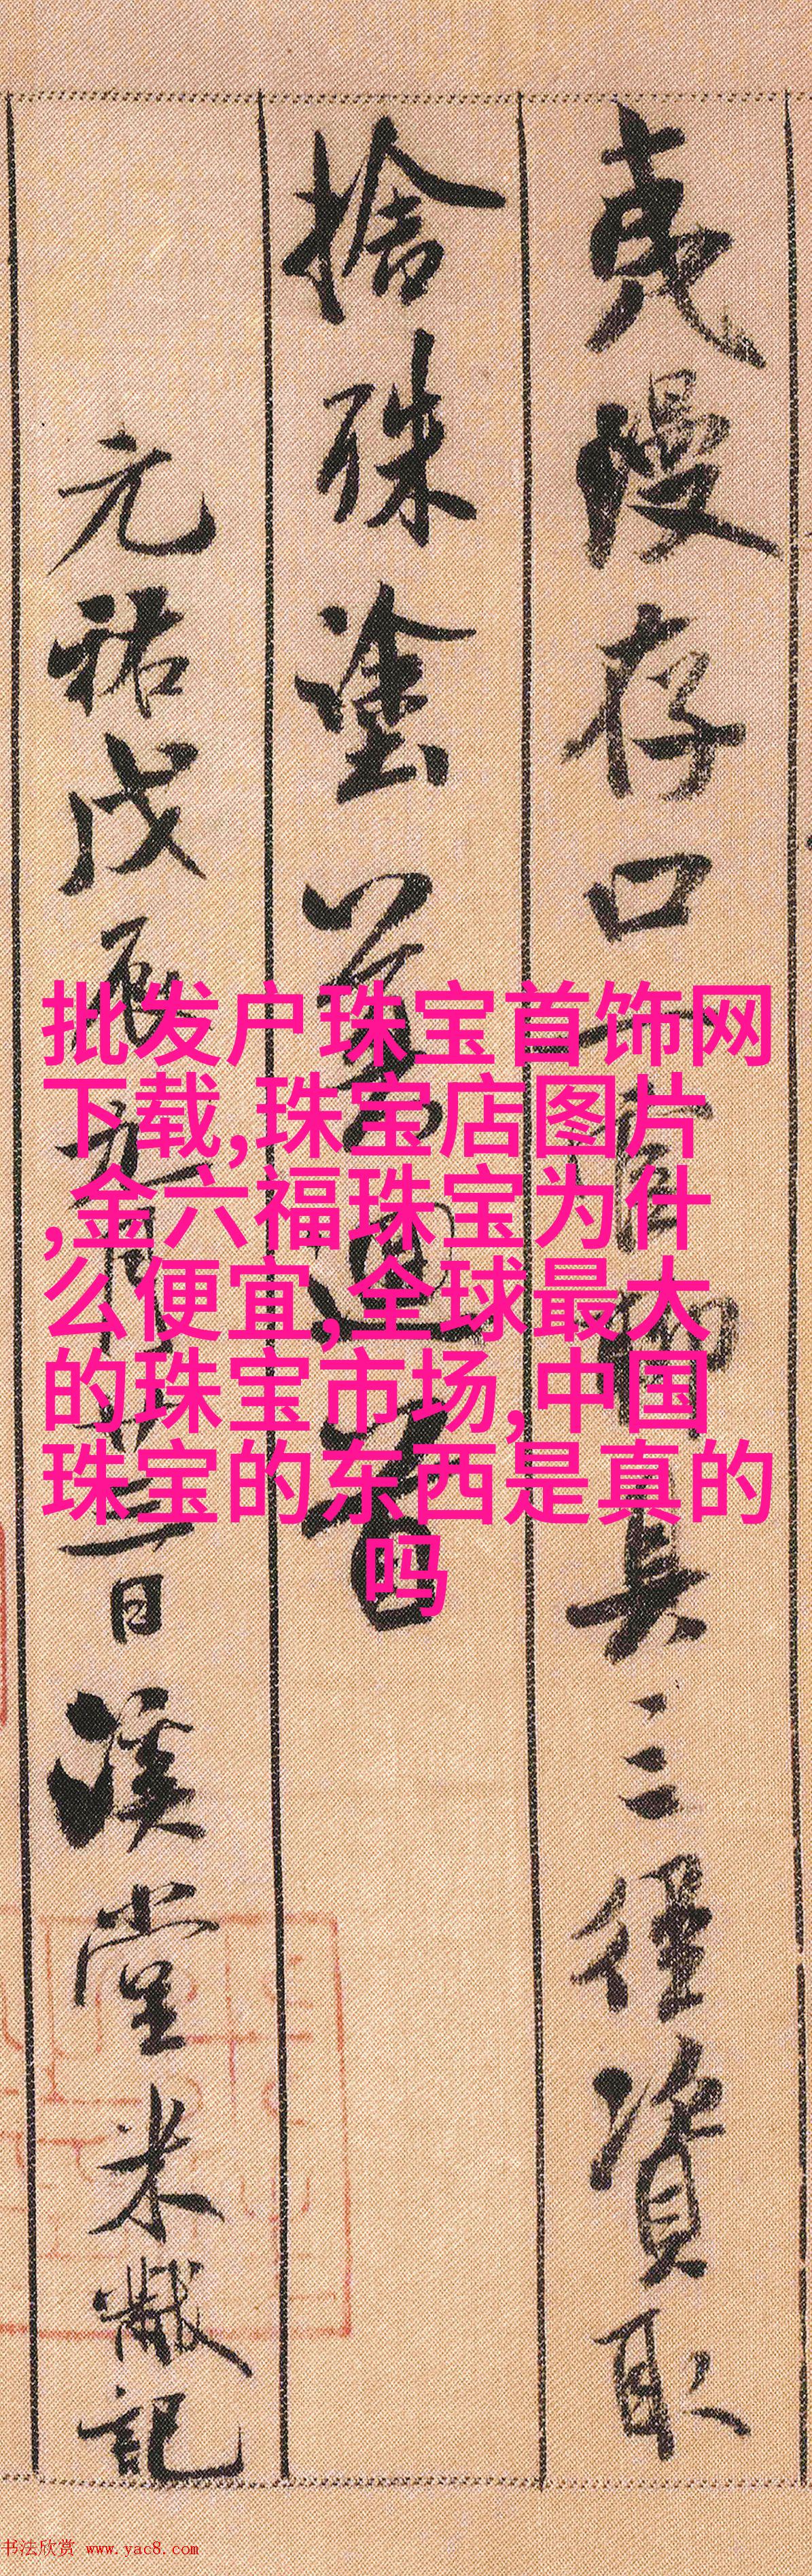 夷漫存口一官聊具三徑資取
捨殊塗莫迴首
元祐戊辰九月廿三日溪堂米黻記
批发户珠宝首饰网
下载,珠宝店图片
,金六福珠宝为什
么便宜,全球最大
的珠宝市场,中国
珠宝的东西是真的
吗
书法欣赏 www.yac8.com